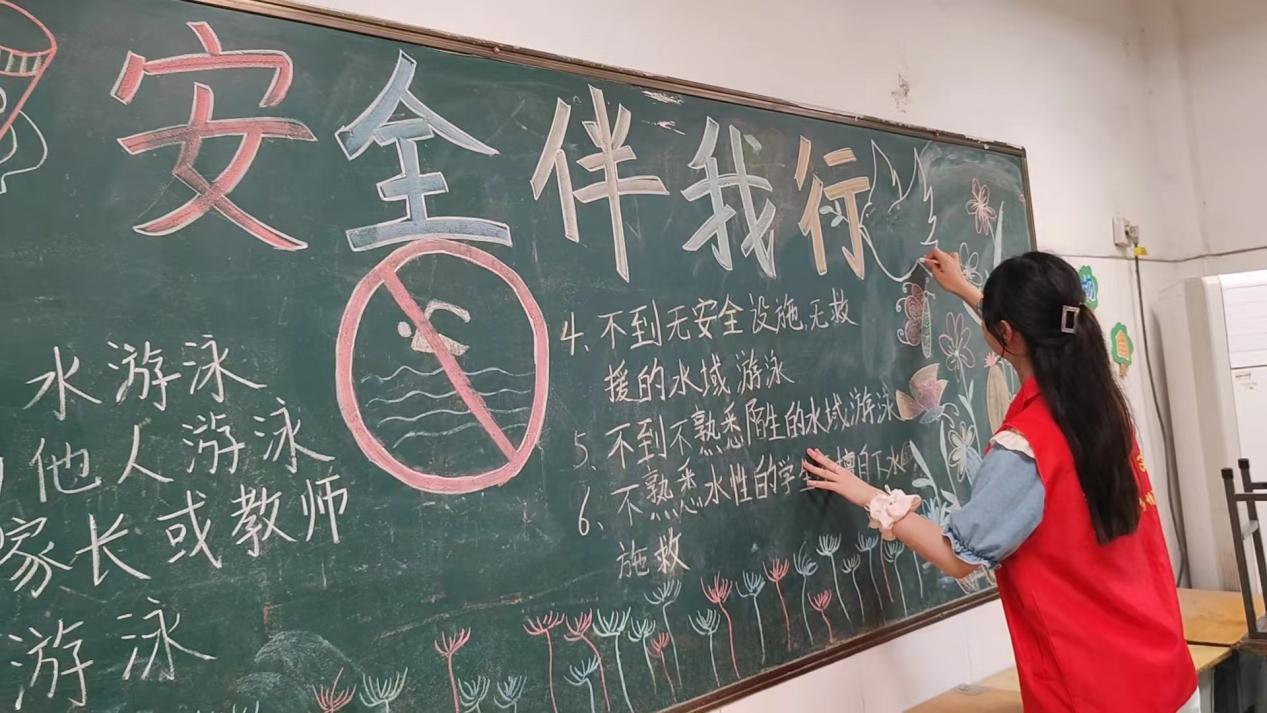 安全伴我行
水游泳
他人游泳
家长或教师
游泳
4、不到无安全设施,无救
援的水域游泳
5、不到不熟悉陌生的水域游泳
6、不熟悉水性的学生擅自下水
施救